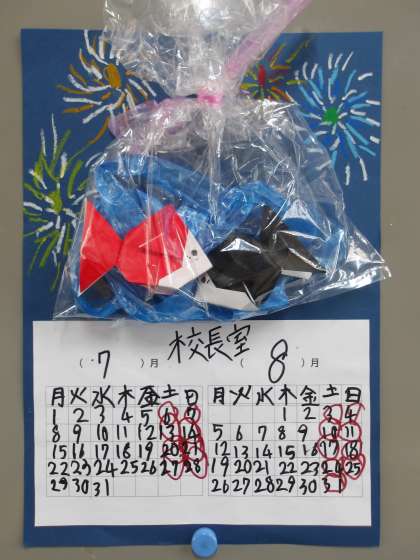 校長室
( 7 )月 ( 8 )月
月火水木金土日 月火水木金土日
1 2 3 4 5 6 7 1 2 3 4
8 9 10 11 12 13 14 5 6 7 8 9 10 11
15 16 17 18 19 20 21 12 13 14 15 16 17 18
22 23 24 25 26 27 28 19 20 21 22 23 24 25
29 30 31 26 27 28 29 30 31